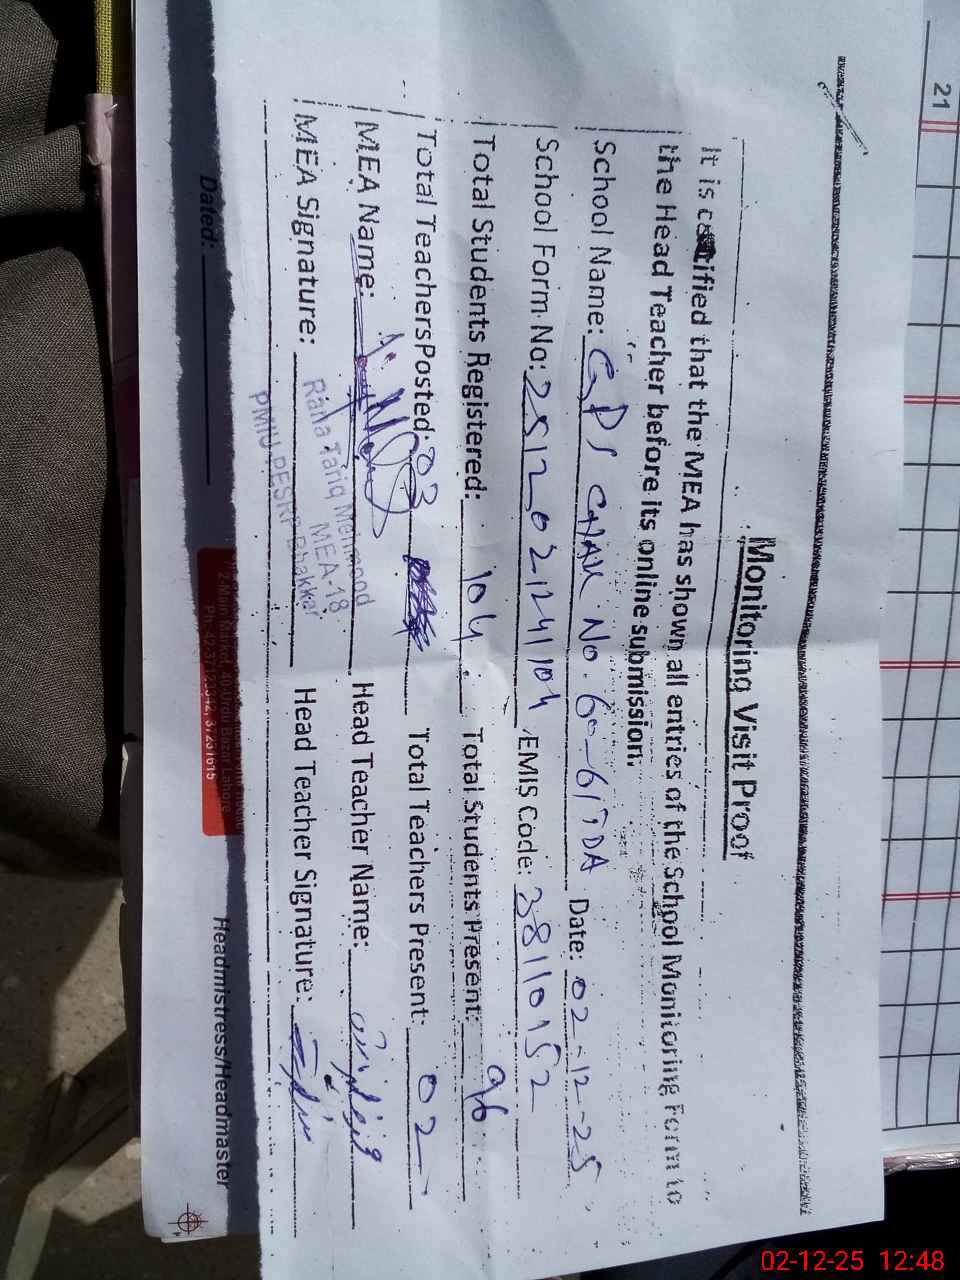 21
Monitoring Visit Proof
It is certified that the MEA has shown all entries of the School Monitoring Form to
the Head Teacher before its online submission.
School Name: GPS CHAK NO. 60-61 TDA Date: 02-12-25
School Form No: 2512021241104, EMIS Code: 38110152
Total Students Registered: 104 Total Students Present: 96
Total Teachers Posted: 03 Total Teachers Present: 02
MEA Name: Head Teacher Name:
MEA Signature: Head Teacher Signature:
Rana Tariq Mehmood
MEA-18
PMIU-PESRP Bhakkar
Dated: Headmistress/Headmaster
2-Main Market, 40-Urdu Bazar Lahore
Ph: 42-37123342, 37231615
02-12-25 12:48